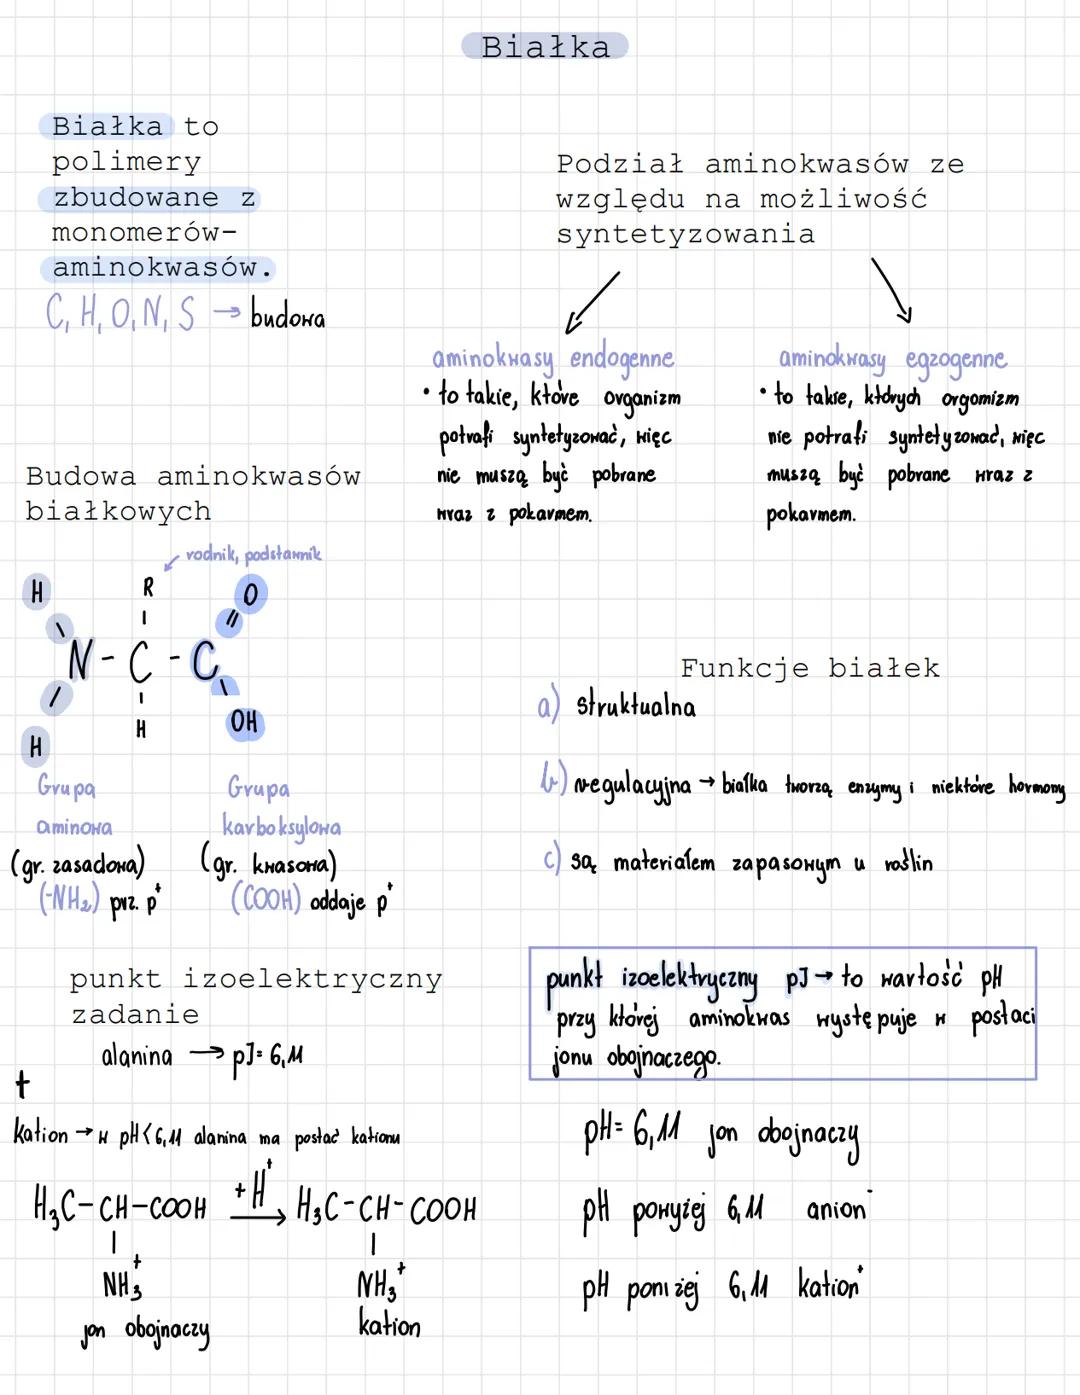 Białka
Białka to
polimery
zbudowane z
monomerów-
aminokwasów.
C, H, O, N, S → budowa
Podział aminokwasów ze
względu na możliwość
syntetyzowania
aminokwasy endogenne
• to takie, które organizm
potrafi syntetyzować, więc
nie muszą być pobrane
wraz z pokarmem.
aminokwasy egzogenne
• to takie, których orgomizm
nie potrafi syntetyzować, więc
muszą być pobrane wraz z
pokarmem.
Budowa aminokwasów
białkowych
rodnik, podstawnik
H R O
\ | //
N - C - C
/ | \
H H OH
Grupa
aminowa
(gr. zasadowa)
(-NH₂) prz. p⁺
Grupa
karboksylowa
(gr. kwasowa)
(COOH) oddaje p⁺
Funkcje białek
a) struktualna
b) regulacyjna → białka tworzą enzymy i niektóre hormony
c) są materiałem zapasowym u roślin
punkt izoelektryczny
zadanie
alanina → pJ= 6,11
+
kation → w pH < 6,11 alanina ma postać kationu
H₃C-CH-COOH +H⁺ → H₃C-CH-COOH
| |
NH₃⁺ NH₃⁺
jon obojnaczy kation
punkt izoelektryczny pJ → to wartość pH
przy której aminokwas występuje w postaci
jonu obojnaczego.
pH= 6,11 jon obojnaczy
pH powyżej 6,11 anion⁻
pH poniżej 6,11 kation⁺